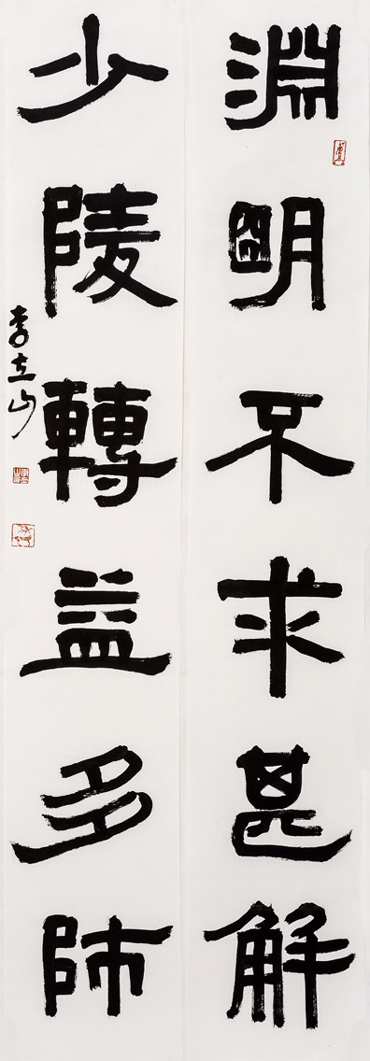 淵明不求甚解
少陵轉益多師
李立山